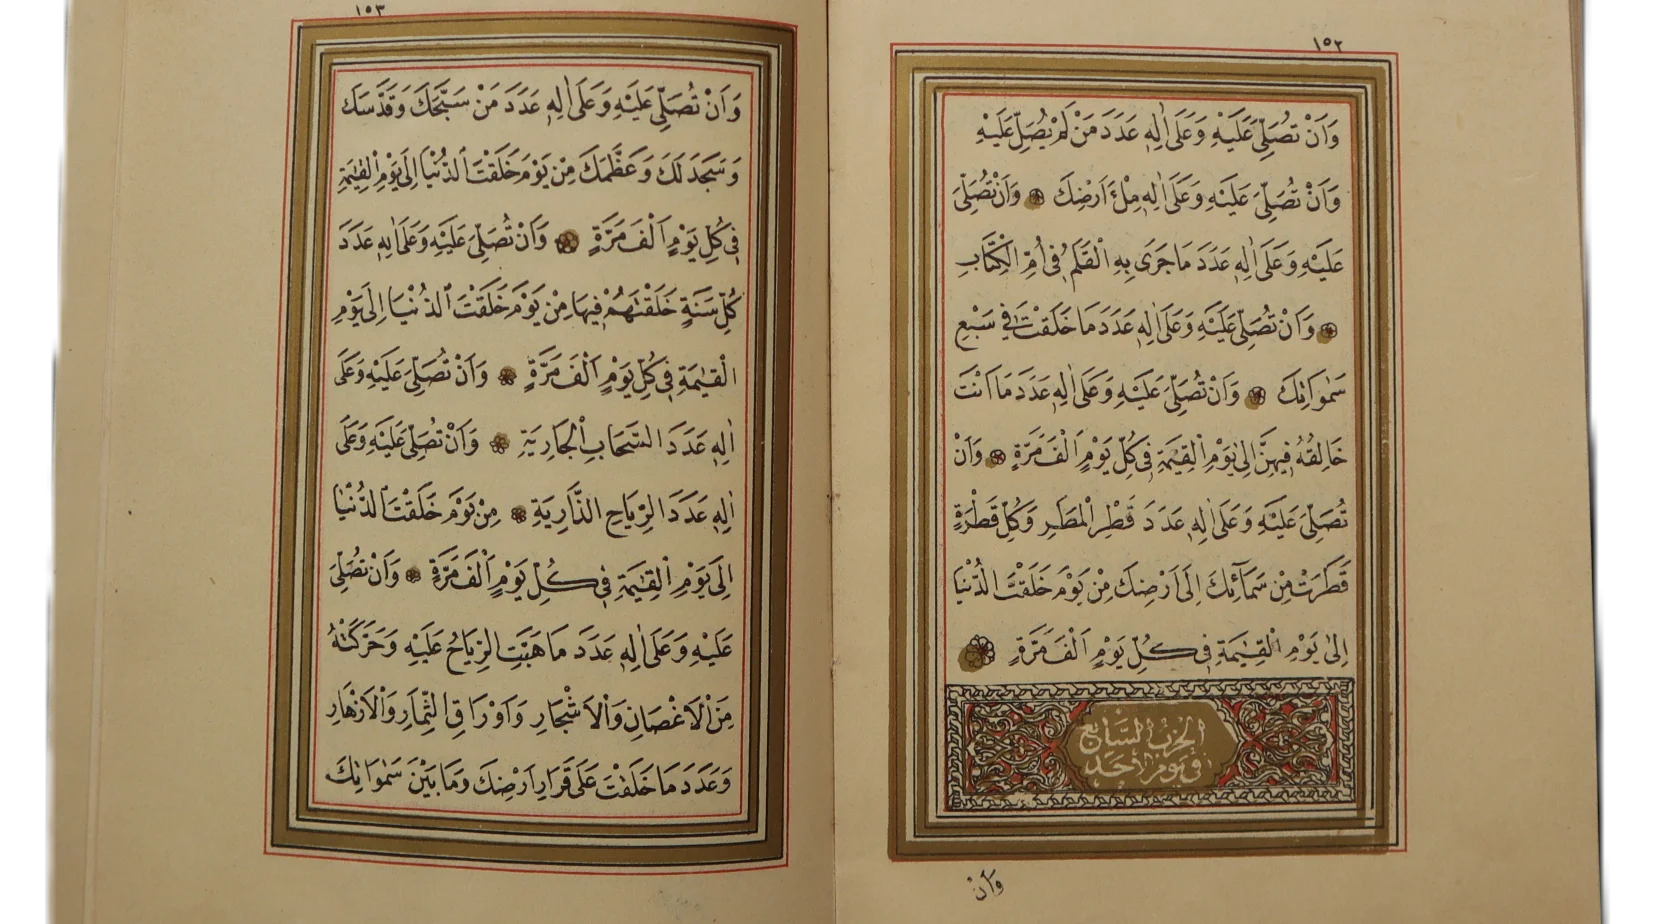 ١٥٢
وَاَنْ تُصَلِّىَ عَلَيْهِ وَعَلٰى اٰلِهٖ عَدَدَ مَنْ لَمْ يُصَلِّ عَلَيْهِ
وَاَنْ تُصَلِّىَ عَلَيْهِ وَعَلٰى اٰلِهٖ مِلْءَ اَرْضِكَ وَاَنْ تُصَلِّىَ
عَلَيْهِ وَعَلٰى اٰلِهٖ عَدَدَ مَا جَرٰى بِهِ الْقَلَمُ فٖى اُمِّ الْكِتَابِ
وَاَنْ تُصَلِّىَ عَلَيْهِ وَعَلٰى اٰلِهٖ عَدَدَ مَا خَلَقْتَ فٖى سَبْعِ
سَمٰوَاتِكَ وَاَنْ تُصَلِّىَ عَلَيْهِ وَعَلٰى اٰلِهٖ عَدَدَ مَا اَنْتَ
خَالِقُهُ فٖيهِنَّ اِلٰى يَوْمِ الْقِيٰمَةِ فٖى كُلِّ يَوْمٍ اَلْفَ مَرَّةٍ وَاَنْ
تُصَلِّىَ عَلَيْهِ وَعَلٰى اٰلِهٖ عَدَدَ قَطْرِ الْمَطَرِ وَكُلِّ قَطْرَةٍ
قَطَرَتْ مِنْ سَمَآئِكَ اِلٰى اَرْضِكَ مِنْ يَوْمَ خَلَقْتَ الدُّنْيَا
اِلٰى يَوْمِ الْقِيٰمَةِ فٖى كُلِّ يَوْمٍ اَلْفَ مَرَّةٍ
الحزب السابع
فى يوم الاحد
وَاَنْ
١٥٣
وَاَنْ تُصَلِّىَ عَلَيْهِ وَعَلٰى اٰلِهٖ عَدَدَ مَنْ سَبَّحَكَ وَقَدَّسَكَ
وَسَجَدَ لَكَ وَعَظَّمَكَ مِنْ يَوْمَ خَلَقْتَ الدُّنْيَا اِلٰى يَوْمِ الْقِيٰمَةِ
فٖى كُلِّ يَوْمٍ اَلْفَ مَرَّةٍ وَاَنْ تُصَلِّىَ عَلَيْهِ وَعَلٰى اٰلِهٖ عَدَدَ
كُلِّ سَنَةٍ خَلَقْتَهُمْ فٖيهَا مِنْ يَوْمَ خَلَقْتَ الدُّنْيَا اِلٰى يَوْمِ
الْقِيٰمَةِ فٖى كُلِّ يَوْمٍ اَلْفَ مَرَّةٍ وَاَنْ تُصَلِّىَ عَلَيْهِ وَعَلٰى
اٰلِهٖ عَدَدَ السَّحَابِ الْجَارِيَةِ وَاَنْ تُصَلِّىَ عَلَيْهِ وَعَلٰى
اٰلِهٖ عَدَدَ الرِّيَاحِ الذَّارِيَةِ مِنْ يَوْمَ خَلَقْتَ الدُّنْيَا
اِلٰى يَوْمِ الْقِيٰمَةِ فٖى كُلِّ يَوْمٍ اَلْفَ مَرَّةٍ وَاَنْ تُصَلِّىَ
عَلَيْهِ وَعَلٰى اٰلِهٖ عَدَدَ مَا هَبَّتِ الرِّيَاحُ عَلَيْهِ وَحَرَّكَتْهُ
مِنَ الْاَغْصَانِ وَالْاَشْجَارِ وَاَوْرَاقِ الثِّمَارِ وَالْاَزْهَارِ
وَعَدَدَ مَا خَلَقْتَ عَلٰى قَرَارِ اَرْضِكَ وَمَا بَيْنَ سَمٰوَاتِكَ